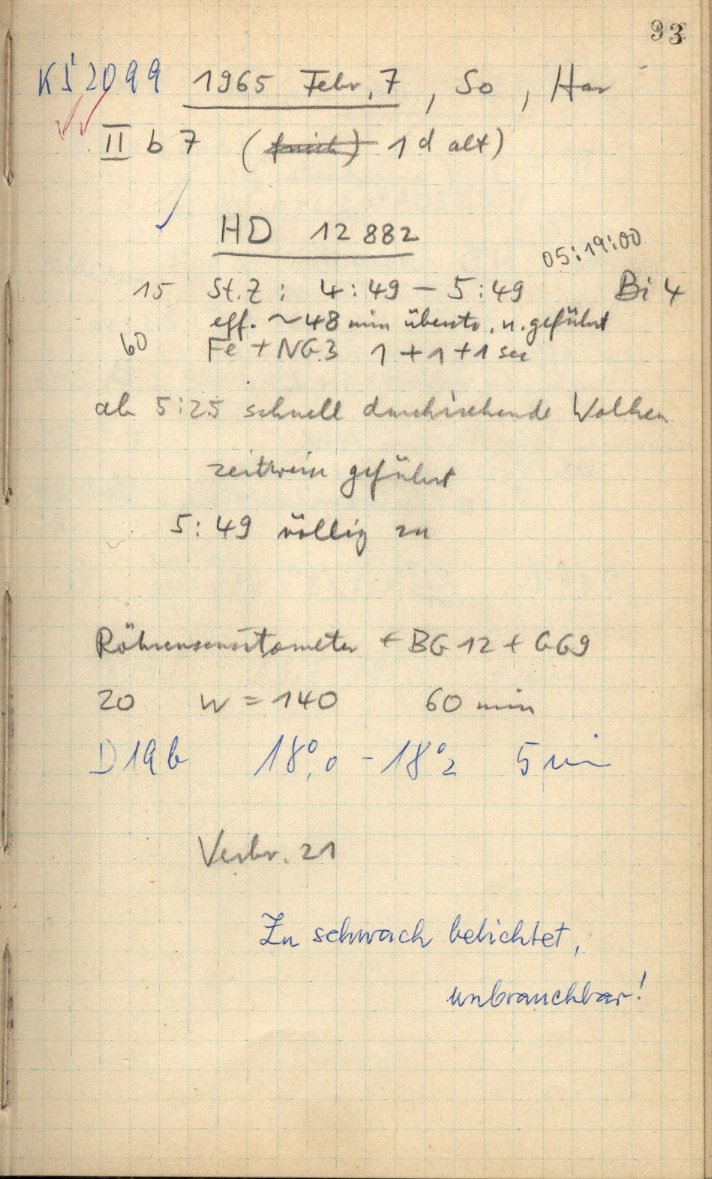 93
KS 2099 1965 Febr. 7, So, Har
II b 7 (frisch) 1d alt)
HD 12882
05:19:00
15 St.Z: 4:49 – 5:49 Bi 4
eff. ~48 min übersto. n. geführt
60 Fe + NG3 1+1+1 sec
ab 5:25 schnell durchziehende Wolken
zeitweise geführt
5:49 völlig zu
Röhrensensitometer + BG12 + GG9
20 W = 140 60 min
D19b 18°,0 – 18°,2 5 min
Verbr. 21
Zu schwach belichtet,
unbrauchbar!